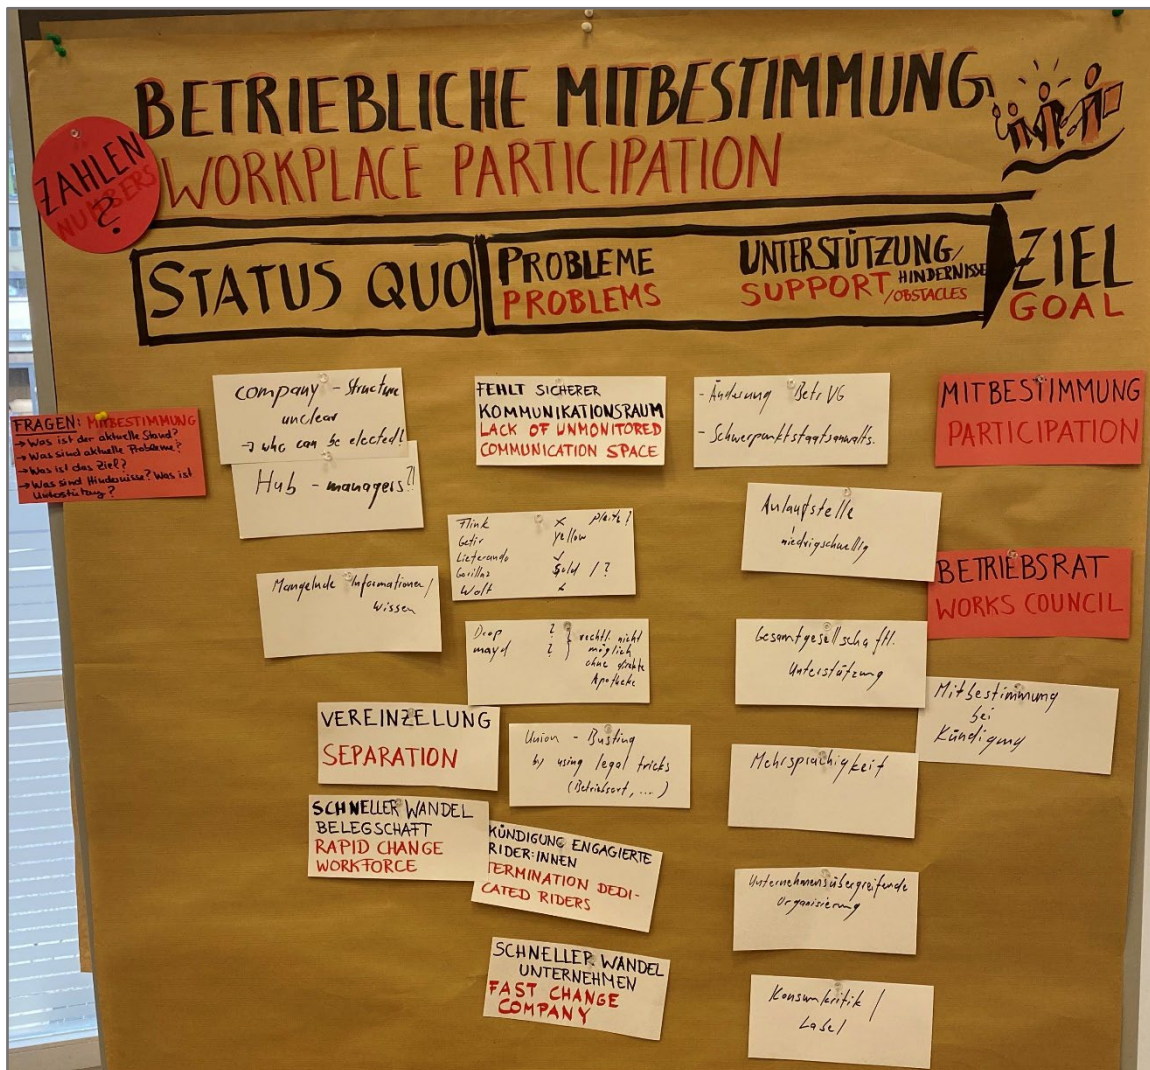 BETRIEBLICHE MITBESTIMMUNG
WORKPLACE PARTICIPATION
ZAHLEN
NUMBERS
?
STATUS QUO
PROBLEME
PROBLEMS
UNTERSTÜTZUNG/
HINDERNISSE
SUPPORT
/OBSTACLES
ZIEL
GOAL
FRAGEN: MITBESTIMMUNG
→ Was ist der aktuelle Stand?
→ Was sind aktuelle Probleme?
→ Was ist das Ziel?
→ Was sind Hindernisse? Was ist
Unterstützung?
Company - Structure
unclear
→ who can be elected?
Hub - managers?!
Mangelnde Informationen/
Wissen
VEREINZELUNG
SEPARATION
SCHNELLER WANDEL
BELEGSCHAFT
RAPID CHANGE
WORKFORCE
FEHLT SICHERER
KOMMUNIKATIONSRAUM
LACK OF UNMONITORED
COMMUNICATION SPACE
Flink x pleite?
Getir yellow
Lieferando ✓
Gorillas Sold / ?
Wolt x
Drop ? } rechtl. nicht
mayd ? möglich
ohne
Apotheke
Union - Busting
by using legal tricks
(Betriebsort, ...)
KÜNDIGUNG ENGAGIERTE
RIDER:INNEN
TERMINATION DEDI-
CATED RIDERS
SCHNELLER WANDEL
UNTERNEHMEN
FAST CHANGE
COMPANY
- Änderung BetrVG
- Schwerpunktstaatsanwalts.
Anlaufstelle
niedrigschwellig
Gesamtgesellschaftl.
Unterstützung
Mehrsprachigkeit
Unternehmensübergreifende
Organisierung
Konsumkritik /
Label
MITBESTIMMUNG
PARTICIPATION
BETRIEBSRAT
WORKS COUNCIL
Mitbestimmung
bei
Kündigung